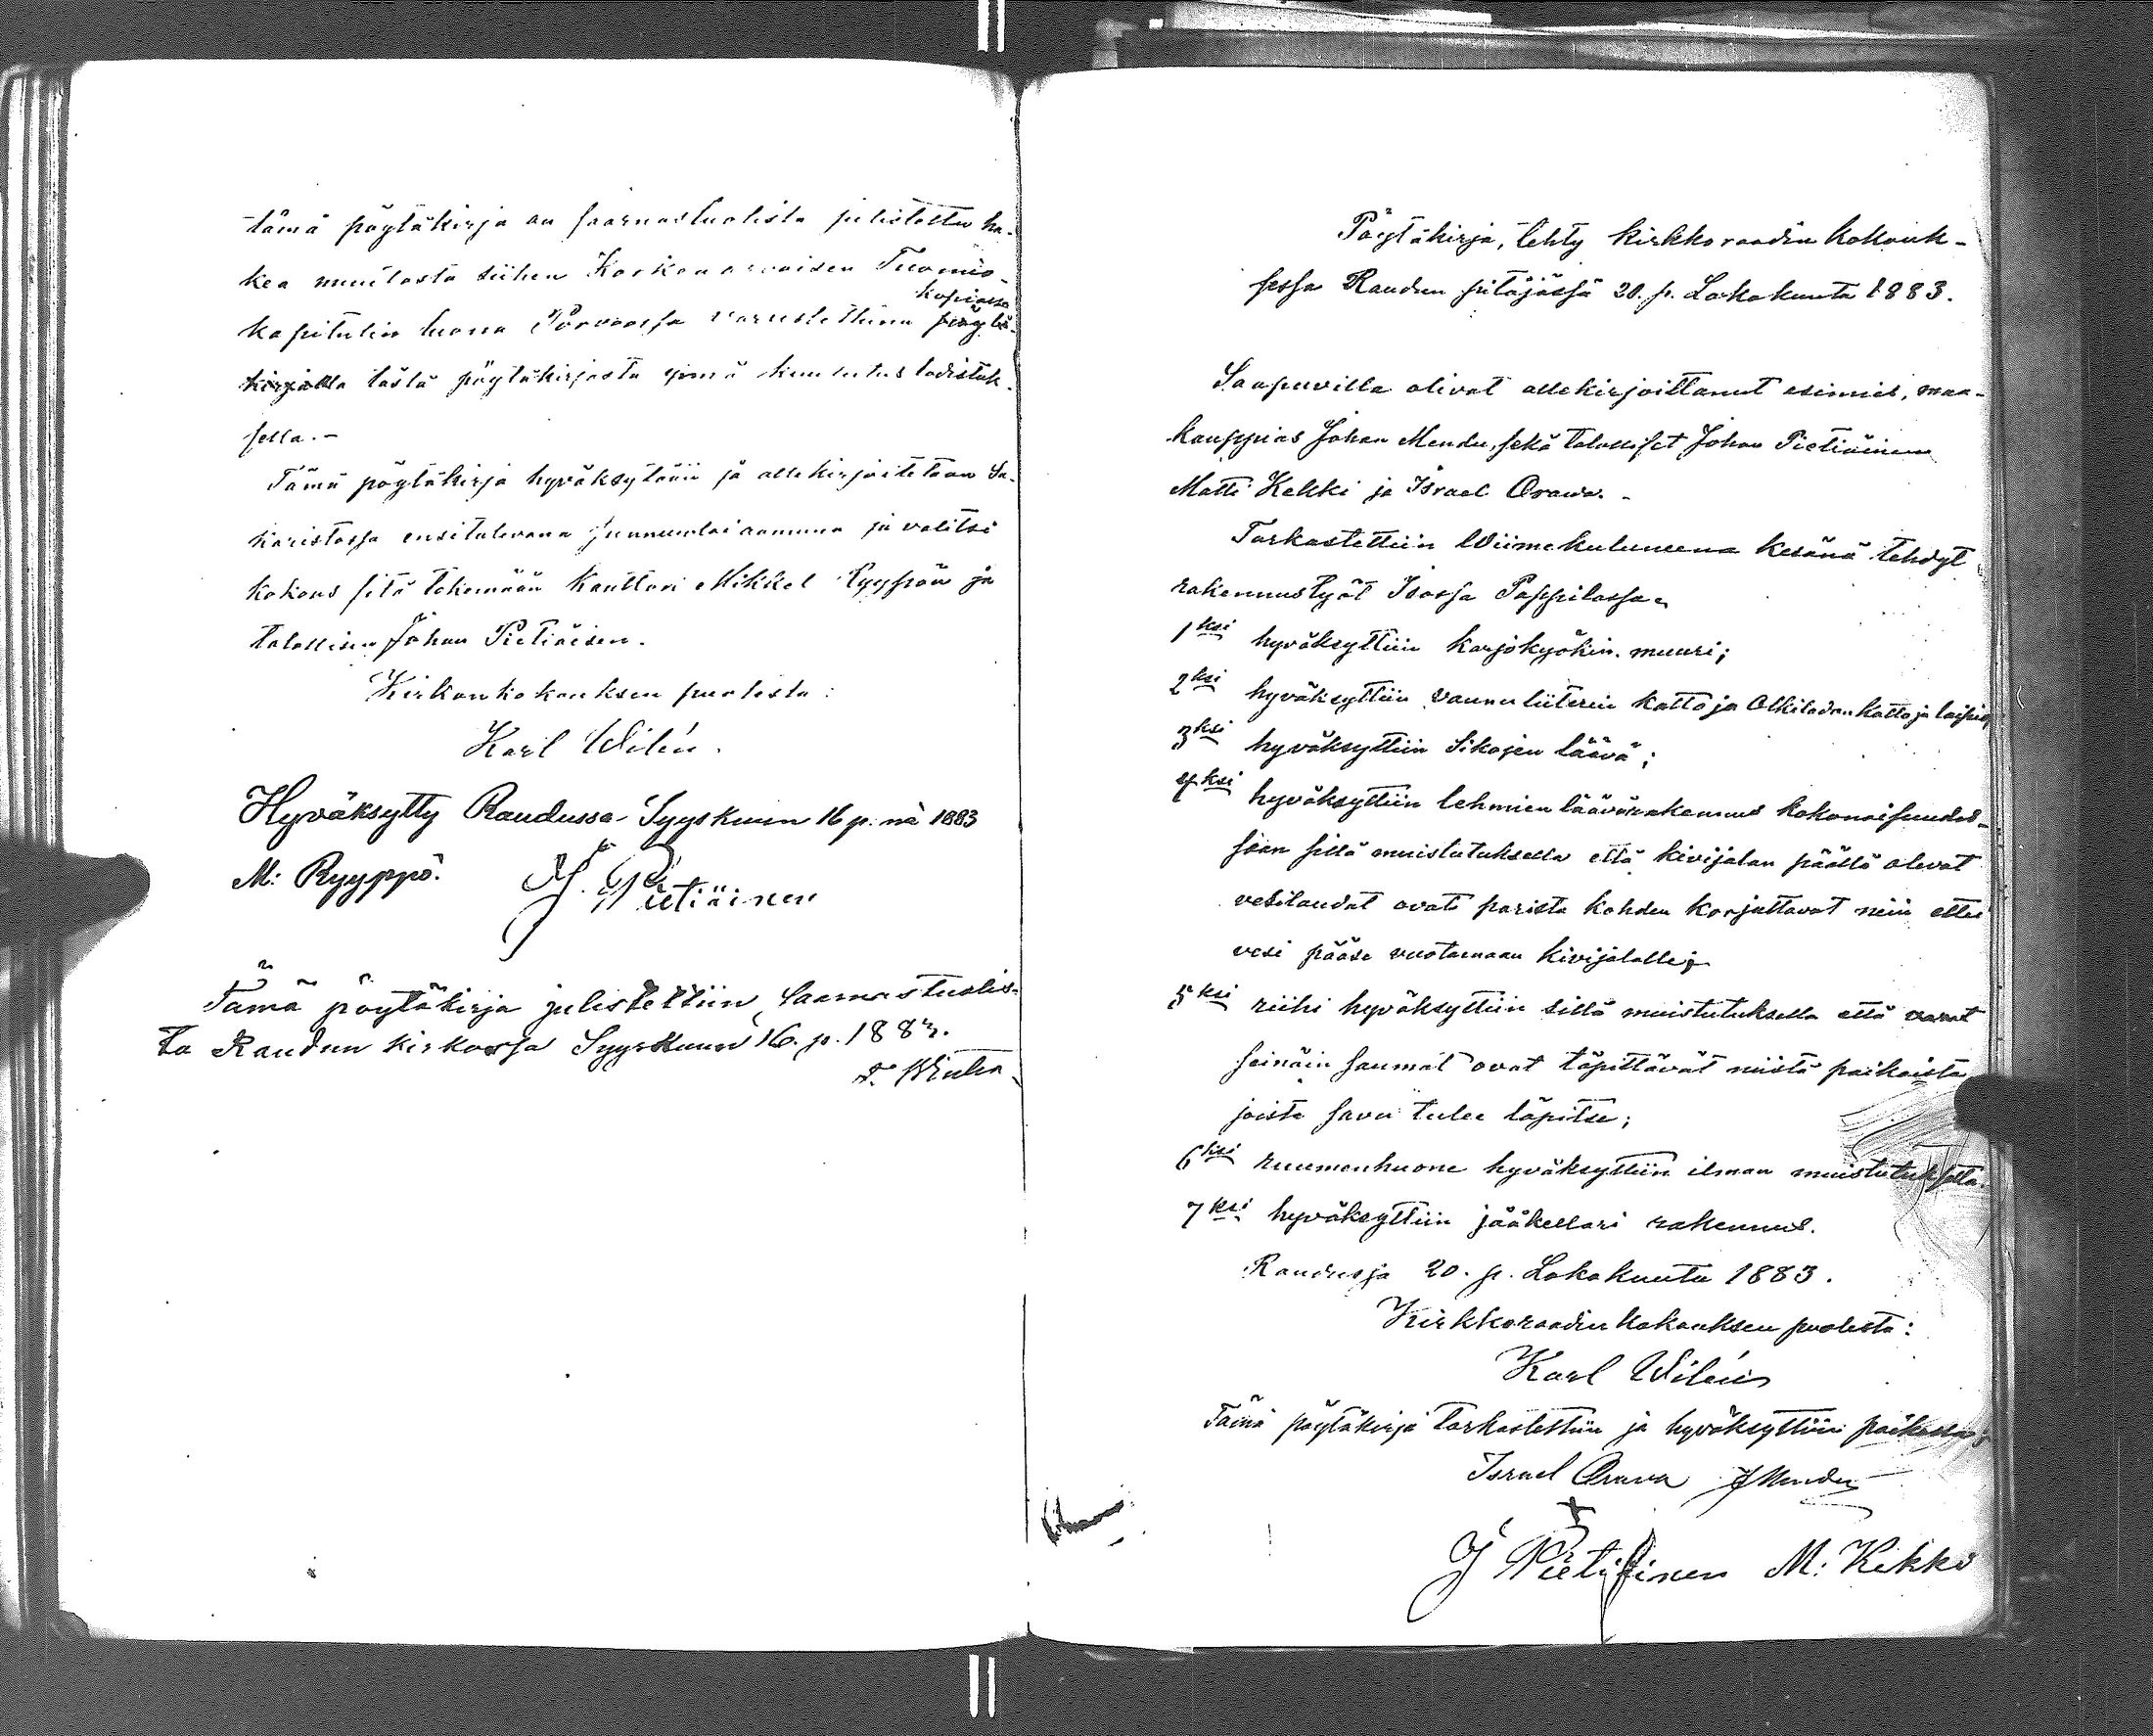 tämä pöytäkirja on saarnastuolista julistettu ha-
kea muutosta siihen Korkea arvoisen Tuomio-
kapitulin luona Porvoossa varustettuna
kopiassa
tästä pöytäkirjasta ynnä kuulutus todistuk-
sella.-
Tämä pöytäkirja hyväksytään ja allekirjoitetaan Sa-
karistossa ensitulevana sunnuntai aamuna ja valitsi
kokous sitä tekemään kanttori Mikkel Ryypön ja
talollisen Johan Pietiäisen.
Kirkonkokouksen puolesta:
Karl Wilén.
Hyväksytty Raudussa Syyskuun 16 p. nä 1883
M: Ryyppö. J. Pietiäinen
Tämä pöytäkirja julistettiin Saarnastuolis-
ta Raudun kirkossa Syyskuun 16. p. 1883.
Pöytäkirja, tehty kirkkoraadin kokouk-
sessa Raudun pitäjässä 20. p. Lokakuuta 1883.
Saapuvilla olivat allekirjoittanut esimies, maa-
kauppias Johan Mendu, sekä talolliset Johan Pietiäinen
Matti Kekki ja Israel Orawa.-
Tarkastettiin Wiimekuluneena kesänä tehdyt
rakennustyöt Isossa Pappilassa.
1ksi hyväksyttiin karjakyökin muuri;
2ksi hyväksyttiin vaunuliiterin katto ja Olkiladon katto ja laipio,
3ksi hyväksyttiin Sikojen läävä;
4ksi hyväksyttiin lehmien läävärakennus kokonaisuudes-
saan sillä muistutuksella että kivijalan päällä olevat
vesilaudat ovat parista kohden korjattavat niin ettei
vesi pääse vuotamaan kivijalalle;
5ksi riihi hyväksyttiin sillä muistutuksella että
seinäin saumat ovat täpittävät niistä paikoista
joista savu tulee läpitse;
6ksi ruumenhuone hyväksyttiin ilman muistutuksetta.
7ksi hyväksyttiin jääkellari rakennus.
Raudussa 20. p. Lokakuuta 1883.
Kirkkoraadin kokouksen puolesta:
Karl Wilén
Tämä pöytäkirja tarkastettiin ja hyväksyttiin paikalla;
Israel Orava J Mendu
J Pietiäinen M: Kekki